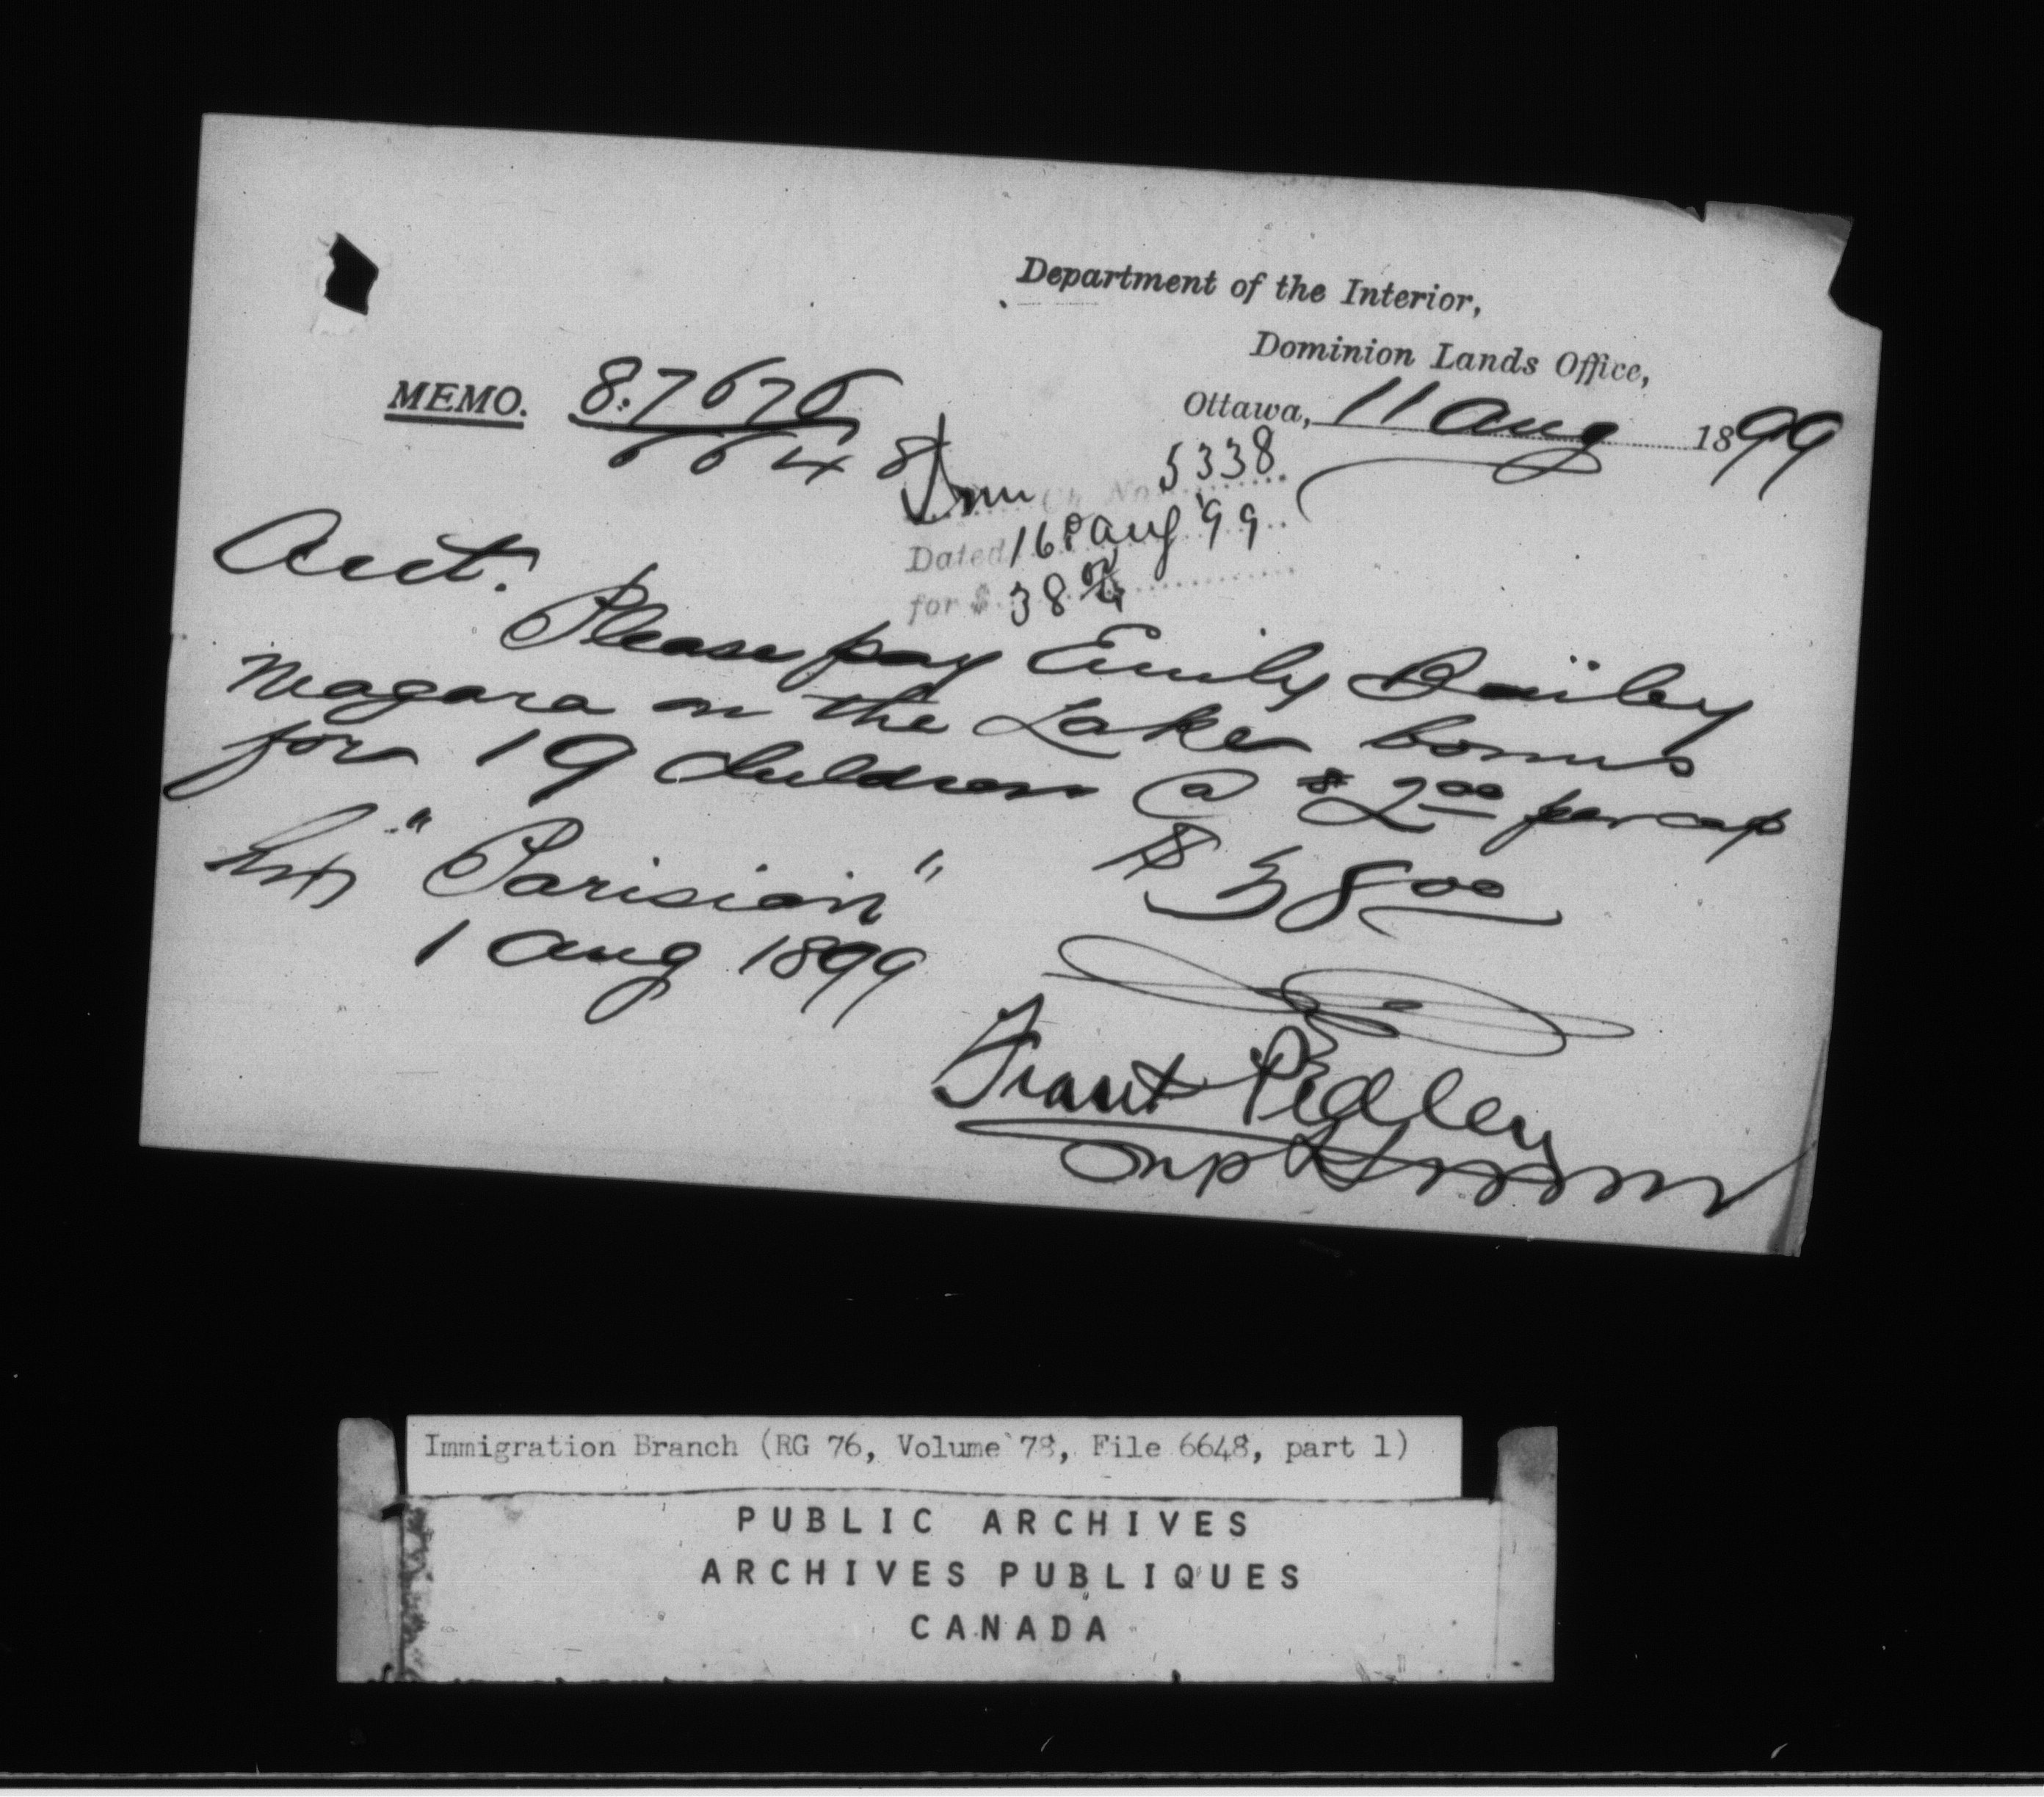 Department of the Interior,
Dominion Lands Office,
Ottawa, 11 Aug 1899
MEMO. 87676
6648 Imm
Ch. No. 5338
Dated 16 Aug '99
for $ 38 00
Acct.
Please pay Emily Bailey
Niagara on the Lake bonus
for 19 children @ $2 00 per cap
"Parisian" $38 00
1 Aug 1899
Frank Pedley
Supt Imm
Immigration Branch (RG 76, Volume 78, File 6648, part 1)
PUBLIC ARCHIVES
ARCHIVES PUBLIQUES
CANADA